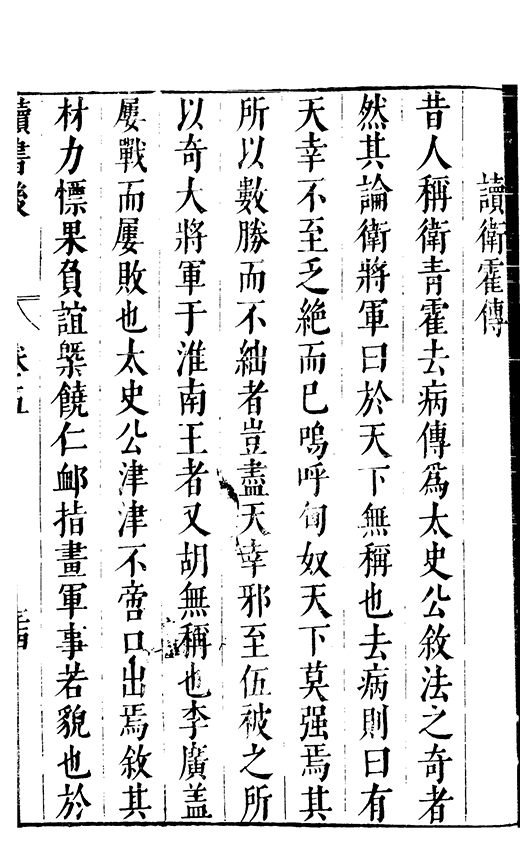 讀衛霍傳
昔人稱衛青霍去病傳爲太史公敘法之奇者
然其論衛將軍曰於天下無稱也去病則曰有
天幸不至乏絶而已嗚呼匈奴天下莫强焉其
所以數勝而不絀者豈盡天幸邪至伍被之所
以奇大將軍于淮南王者又胡無稱也李廣盖
屢戰而屢敗也太史公津津不啻口出焉敘其
材力慓果負誼槩饒仁卹指畫軍事若貌也於
讀書後
卷五